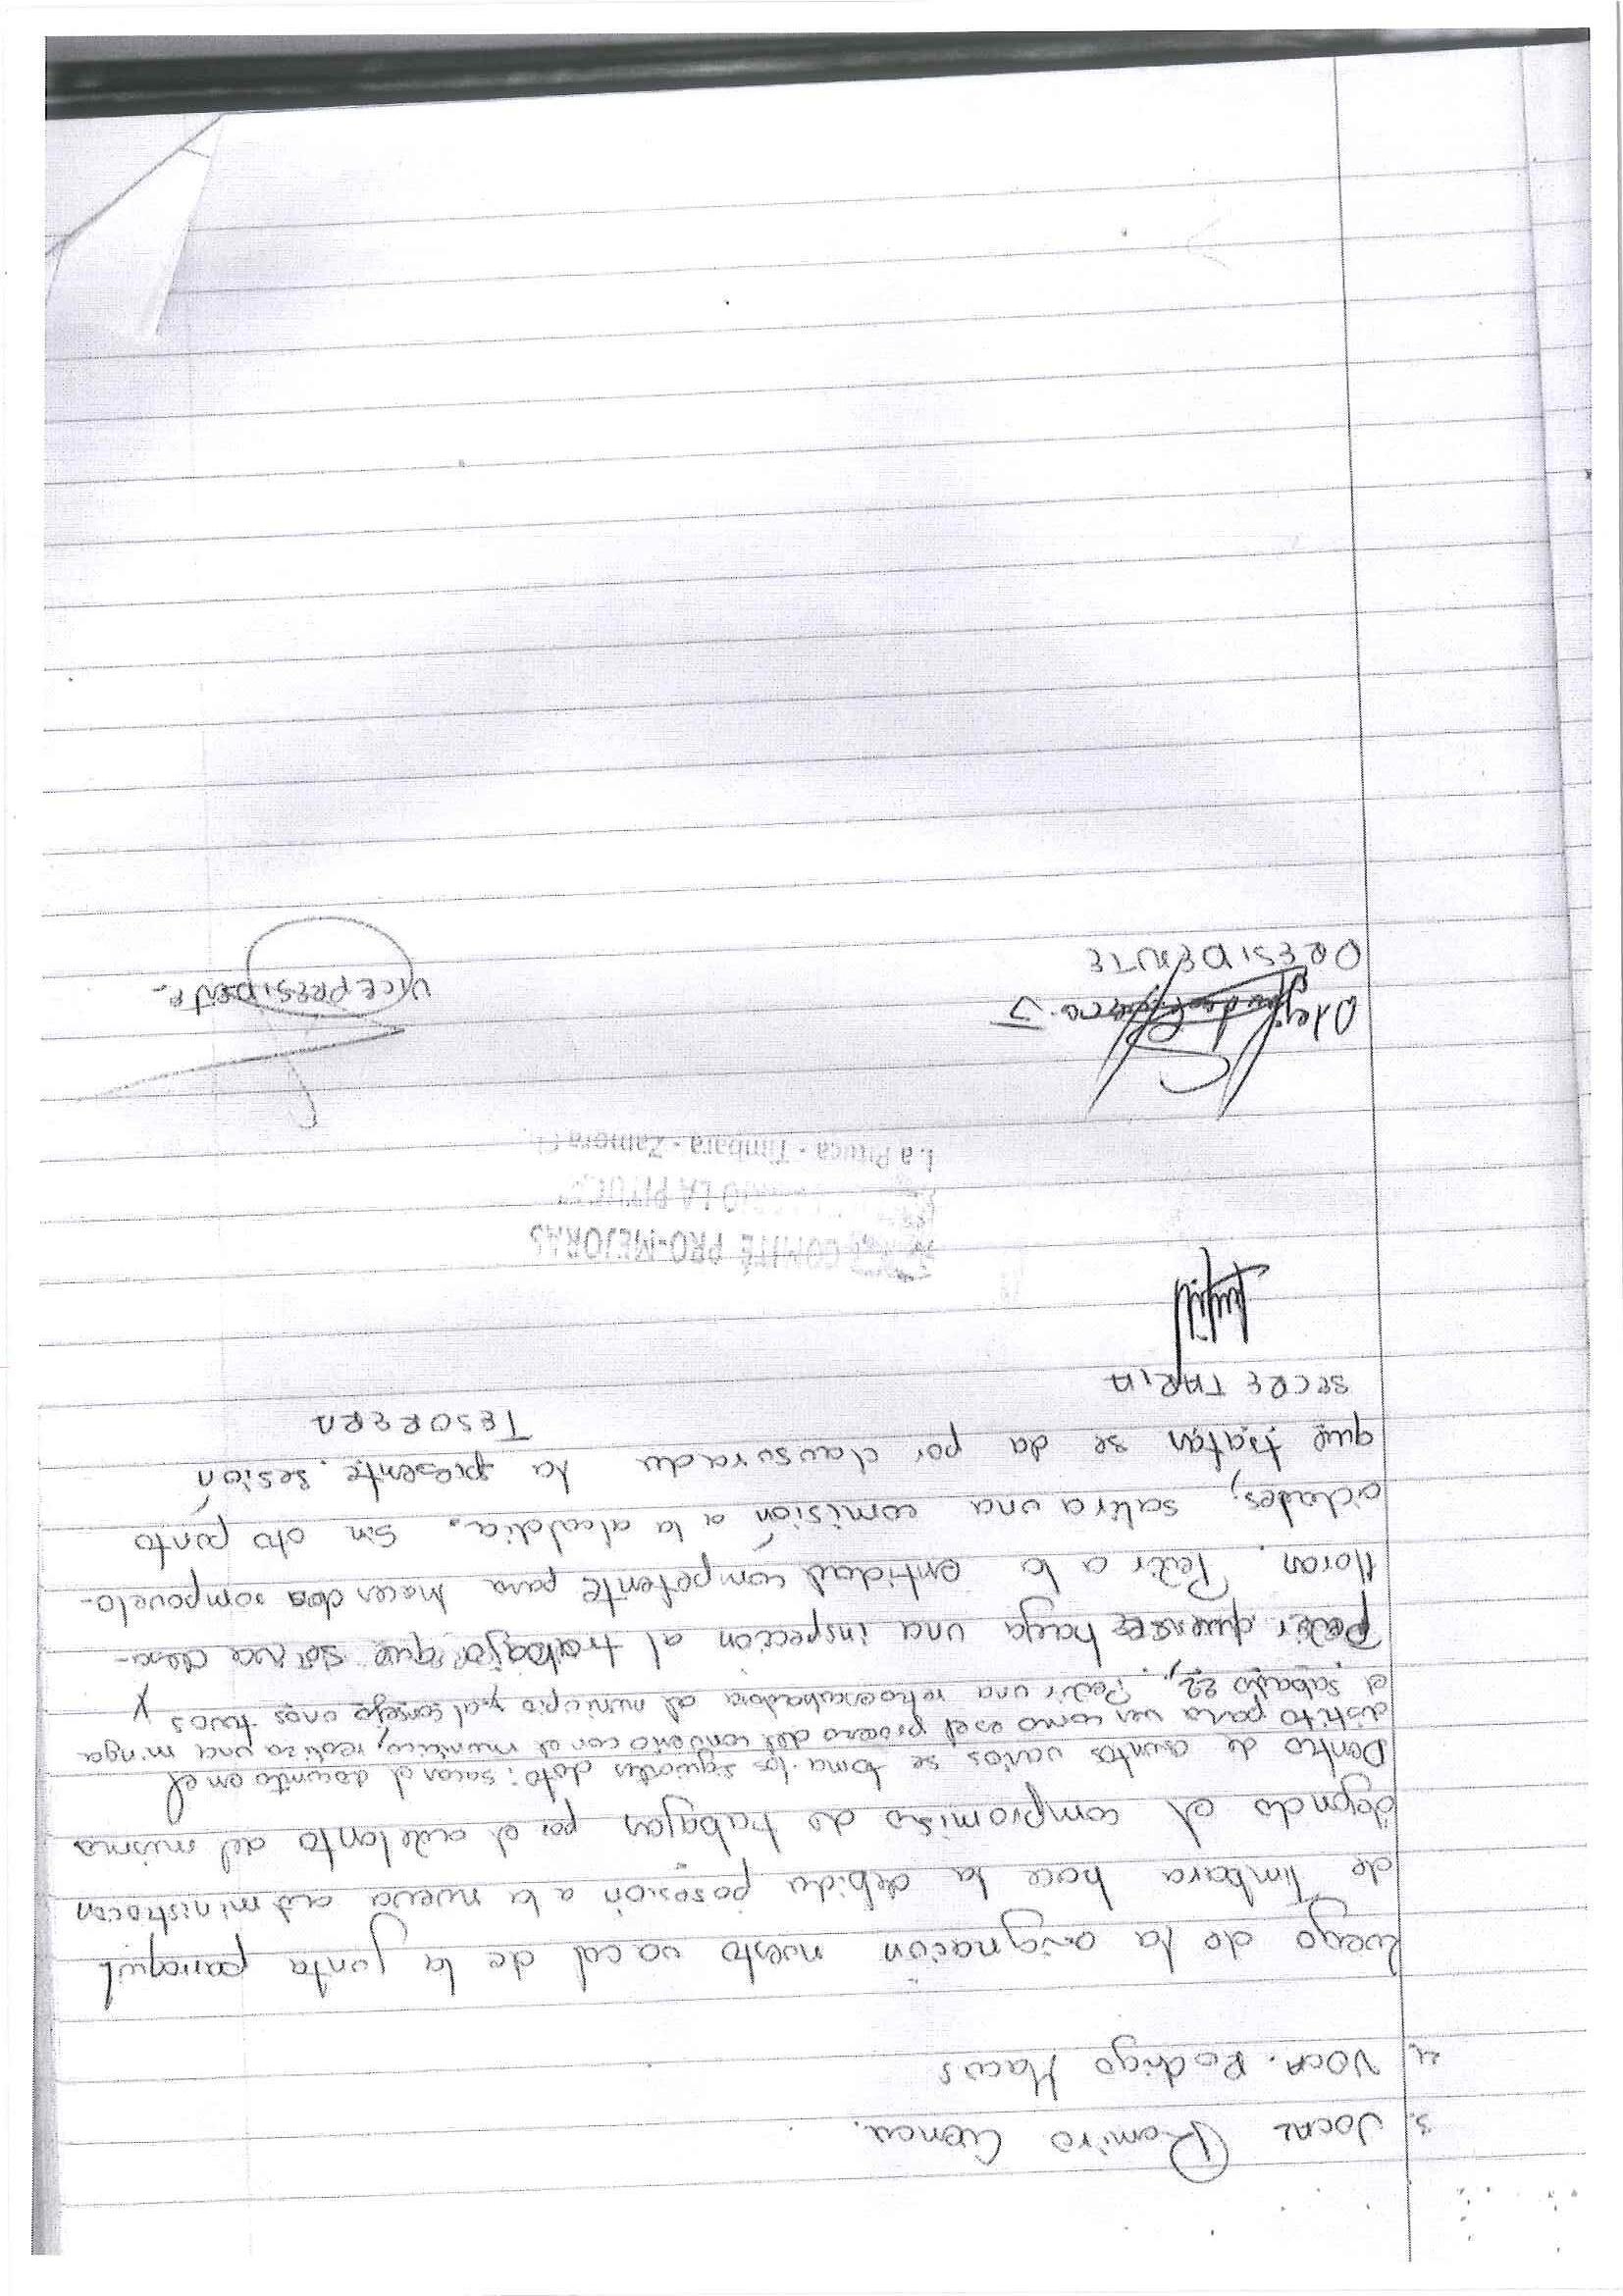 3. VOCAL Ramiro Cuenca.
4. VOCA. Rodrigo Macas
Luego de la asignación nuesto vocal de la junta parroquial
de Timbara hace la debida posesión a la nueva administracón
dejando el compromiso de trabajar por el adelanto del misma
Dentro de asuntos varios se toma los siguientes dato: sacar el documto en el
distrito para ver como es el proceso del convenio con el municipio, realiza una minga
el sabado 22,. Pedir una retroexcabadora al municipio y al consejo unos tuvos X
Pedir que se haga una inspeccion al trabajo que se va desa-
rroran. Pedir a la entidad competente para hacer dos rompovelo-
cidades, saldra una comisión a la alcaldia. Sin oto punto
que tratan se da por clausurada la presente sesión
SECRETARIA TESORERA
COMITE PRO-MEJORAS
BARRIO LA PITUCA
La Pituca - Timbara - Zamora
PRESIDENTE VICEPRESIDENTE.